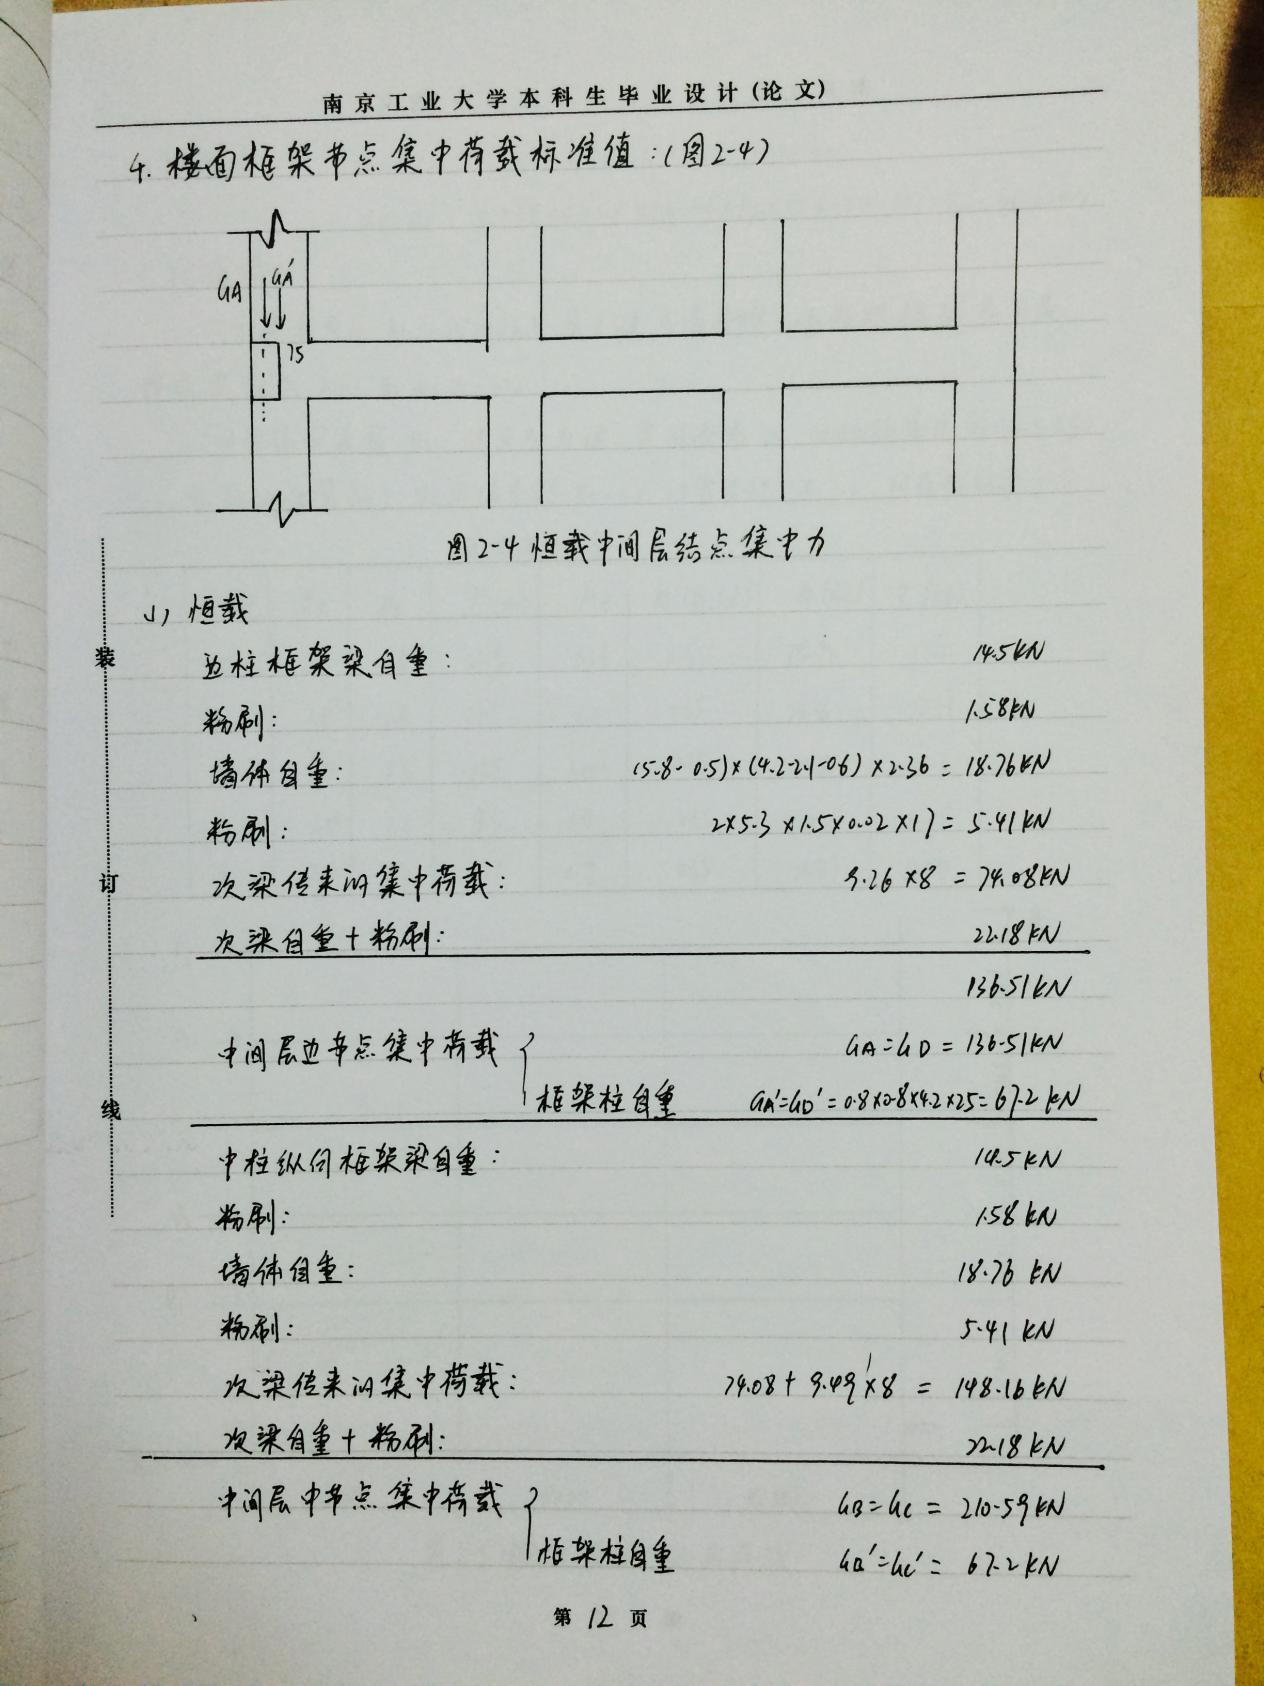 南京工业大学本科生毕业设计(论文)
4. 楼面框架节点集中荷载标准值:(图2-4)
GA GA'
75
图2-4 恒载中间层结点集中力
(1) 恒载
边柱框架梁自重: 14.5kN
粉刷: 1.58kN
墙体自重: (5.8-0.5)×(4.2-2.1-0.6)×2.36=18.76kN
粉刷: 2×5.3×1.5×0.02×17=5.41kN
次梁传来的集中荷载: 9.26×8=74.08kN
次梁自重+粉刷: 22.18kN
136.51kN
中间层边节点集中荷载 GA=GD=136.51kN
框架柱自重 GA'=GD'=0.8×0.8×4.2×25=67.2kN
中柱纵向框架梁自重: 14.5kN
粉刷: 1.58kN
墙体自重: 18.76kN
粉刷: 5.41kN
次梁传来的集中荷载: 74.08+9.49×8=148.16kN
次梁自重+粉刷: 22.18kN
中间层中节点集中荷载 GB=GC=210.59kN
框架柱自重 GB'=GC'=67.2kN
第12页
装
订
线